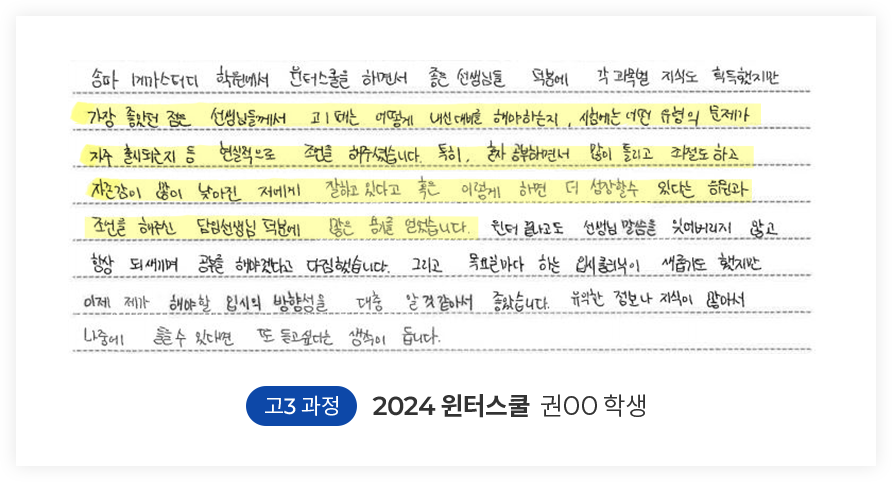 송파 메가스터디 학원에서 윈터스쿨을 하면서 좋은 선생님들 덕분에 각 과목별 지식도 획득했지만
가장 좋았던 점은 선생님들께서 고1때는 어떻게 내신대비를 해야하는지, 시험에는 어떤 유형의 문제가
자주 출시되는지 등 현실적으로 조언을 해주셨습니다. 특히, 혼자 공부하면서 많이 틀리고 좌절도 하고
자존감이 많이 낮아진 저에게 잘하고 있다고 혹은 이렇게 하면 더 성장할수 있다는 응원과
조언을 해주신 담임선생님 덕분에 많은 용기를 얻었습니다. 윈터 끝나고도 선생님 말씀을 잊어버리지 않고
항상 되새기며 공부를 해야겠다고 다짐했습니다. 그리고 목요일마다 하는 입시클리닉이 새롭기도 했지만
이제 제가 해야할 입시의 방향성을 대충 알 것 같아서 좋았습니다. 유익한 정보나 지식이 많아서
나중에 들을수 있다면 또 듣고싶다는 생각이 듭니다.
고3 과정 2024 윈터스쿨 권OO 학생